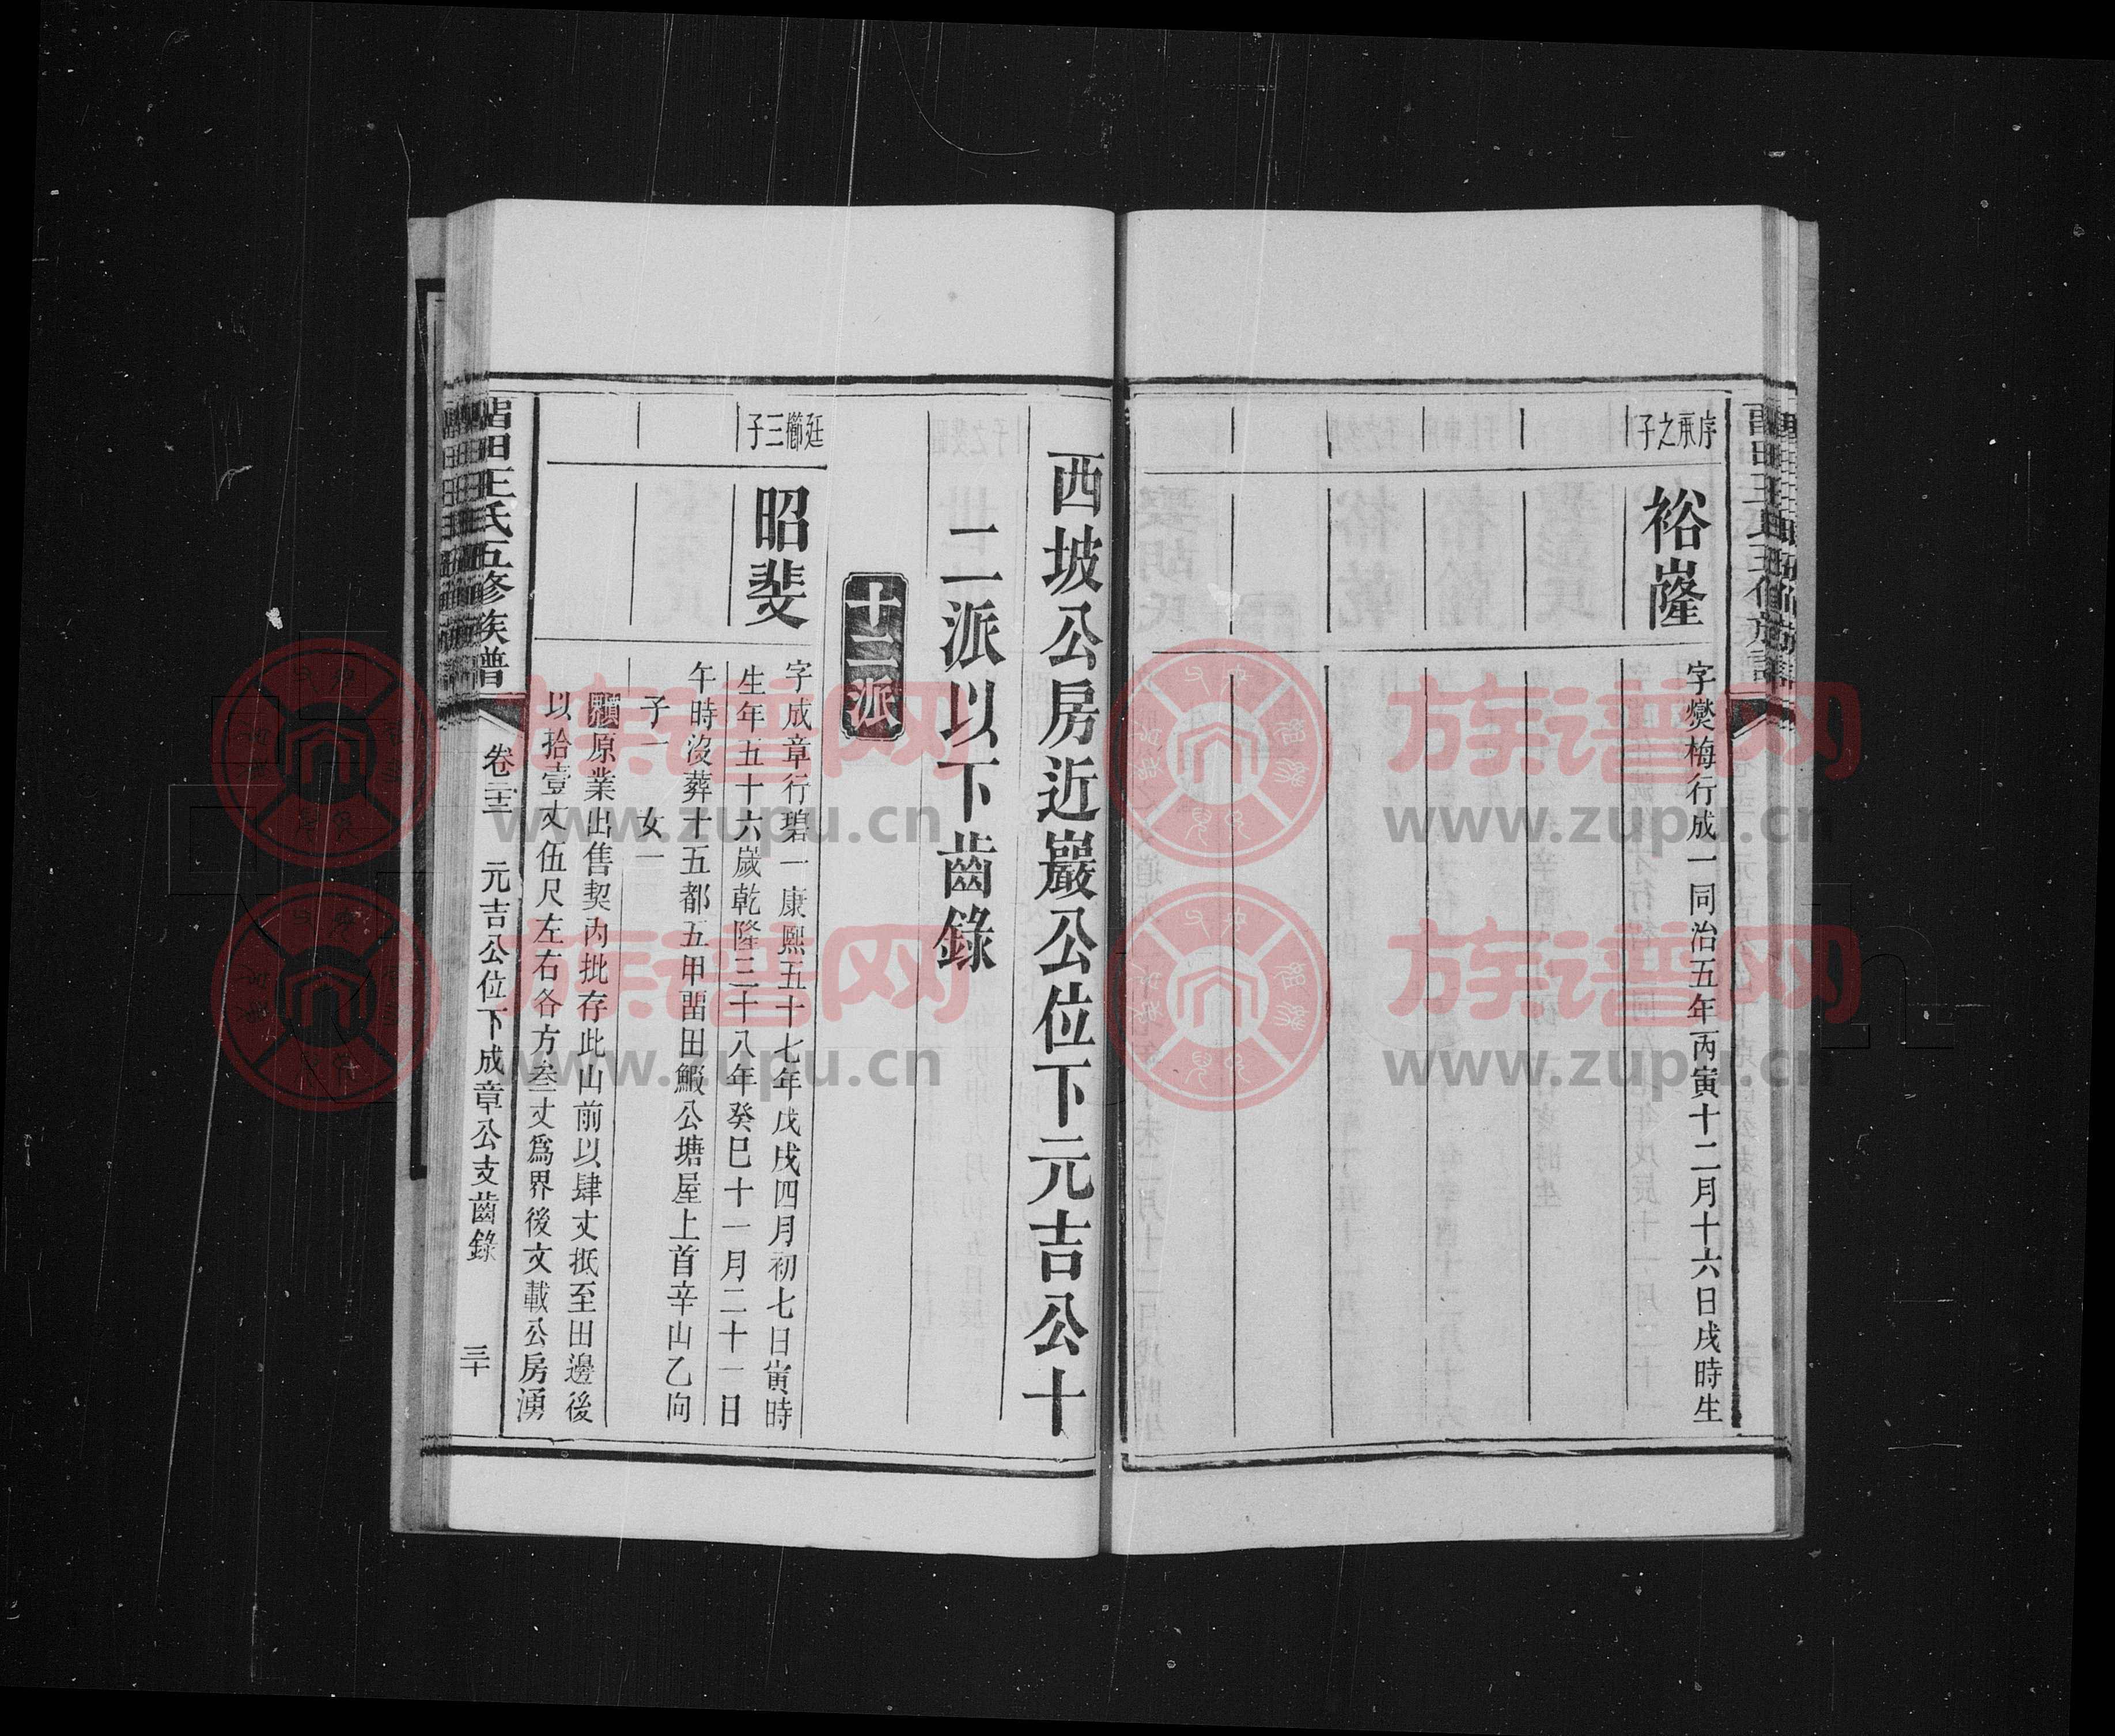 序東之子
裕嶐
字爕梅行成一同治五年丙寅十二月十六日戌時生
西坡公房近巖公位下元吉公十
二派以下齒錄
十二派
廷櫛三子
昭斐
字成章行碧一康熙五十七年戊戌四月初七日寅時
生年五十六嵗乾隆三十八年癸巳十一月二十一日
午時沒葬十五都五甲畱田鰕公塘屋上首辛山乙向
子一　女一
原業出售契內批存此山前以肆丈抵至田邊後
以拾壹丈伍尺左右各方叁丈爲界後文載公房湧
畱田王氏五修族譜
卷三
元吉公位下成章公支齒錄
三十
族谱网
www.zupu.cn
族谱网
www.zupu.cn
族谱网
www.zupu.cn
族谱网
www.zupu.cn